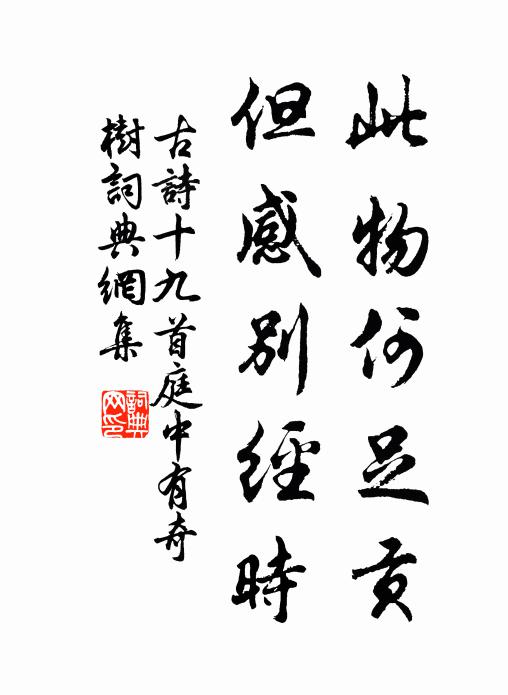 此物何足貢
但感別經時
古詩十九首庭中有奇
樹詞典網集
詞典網印